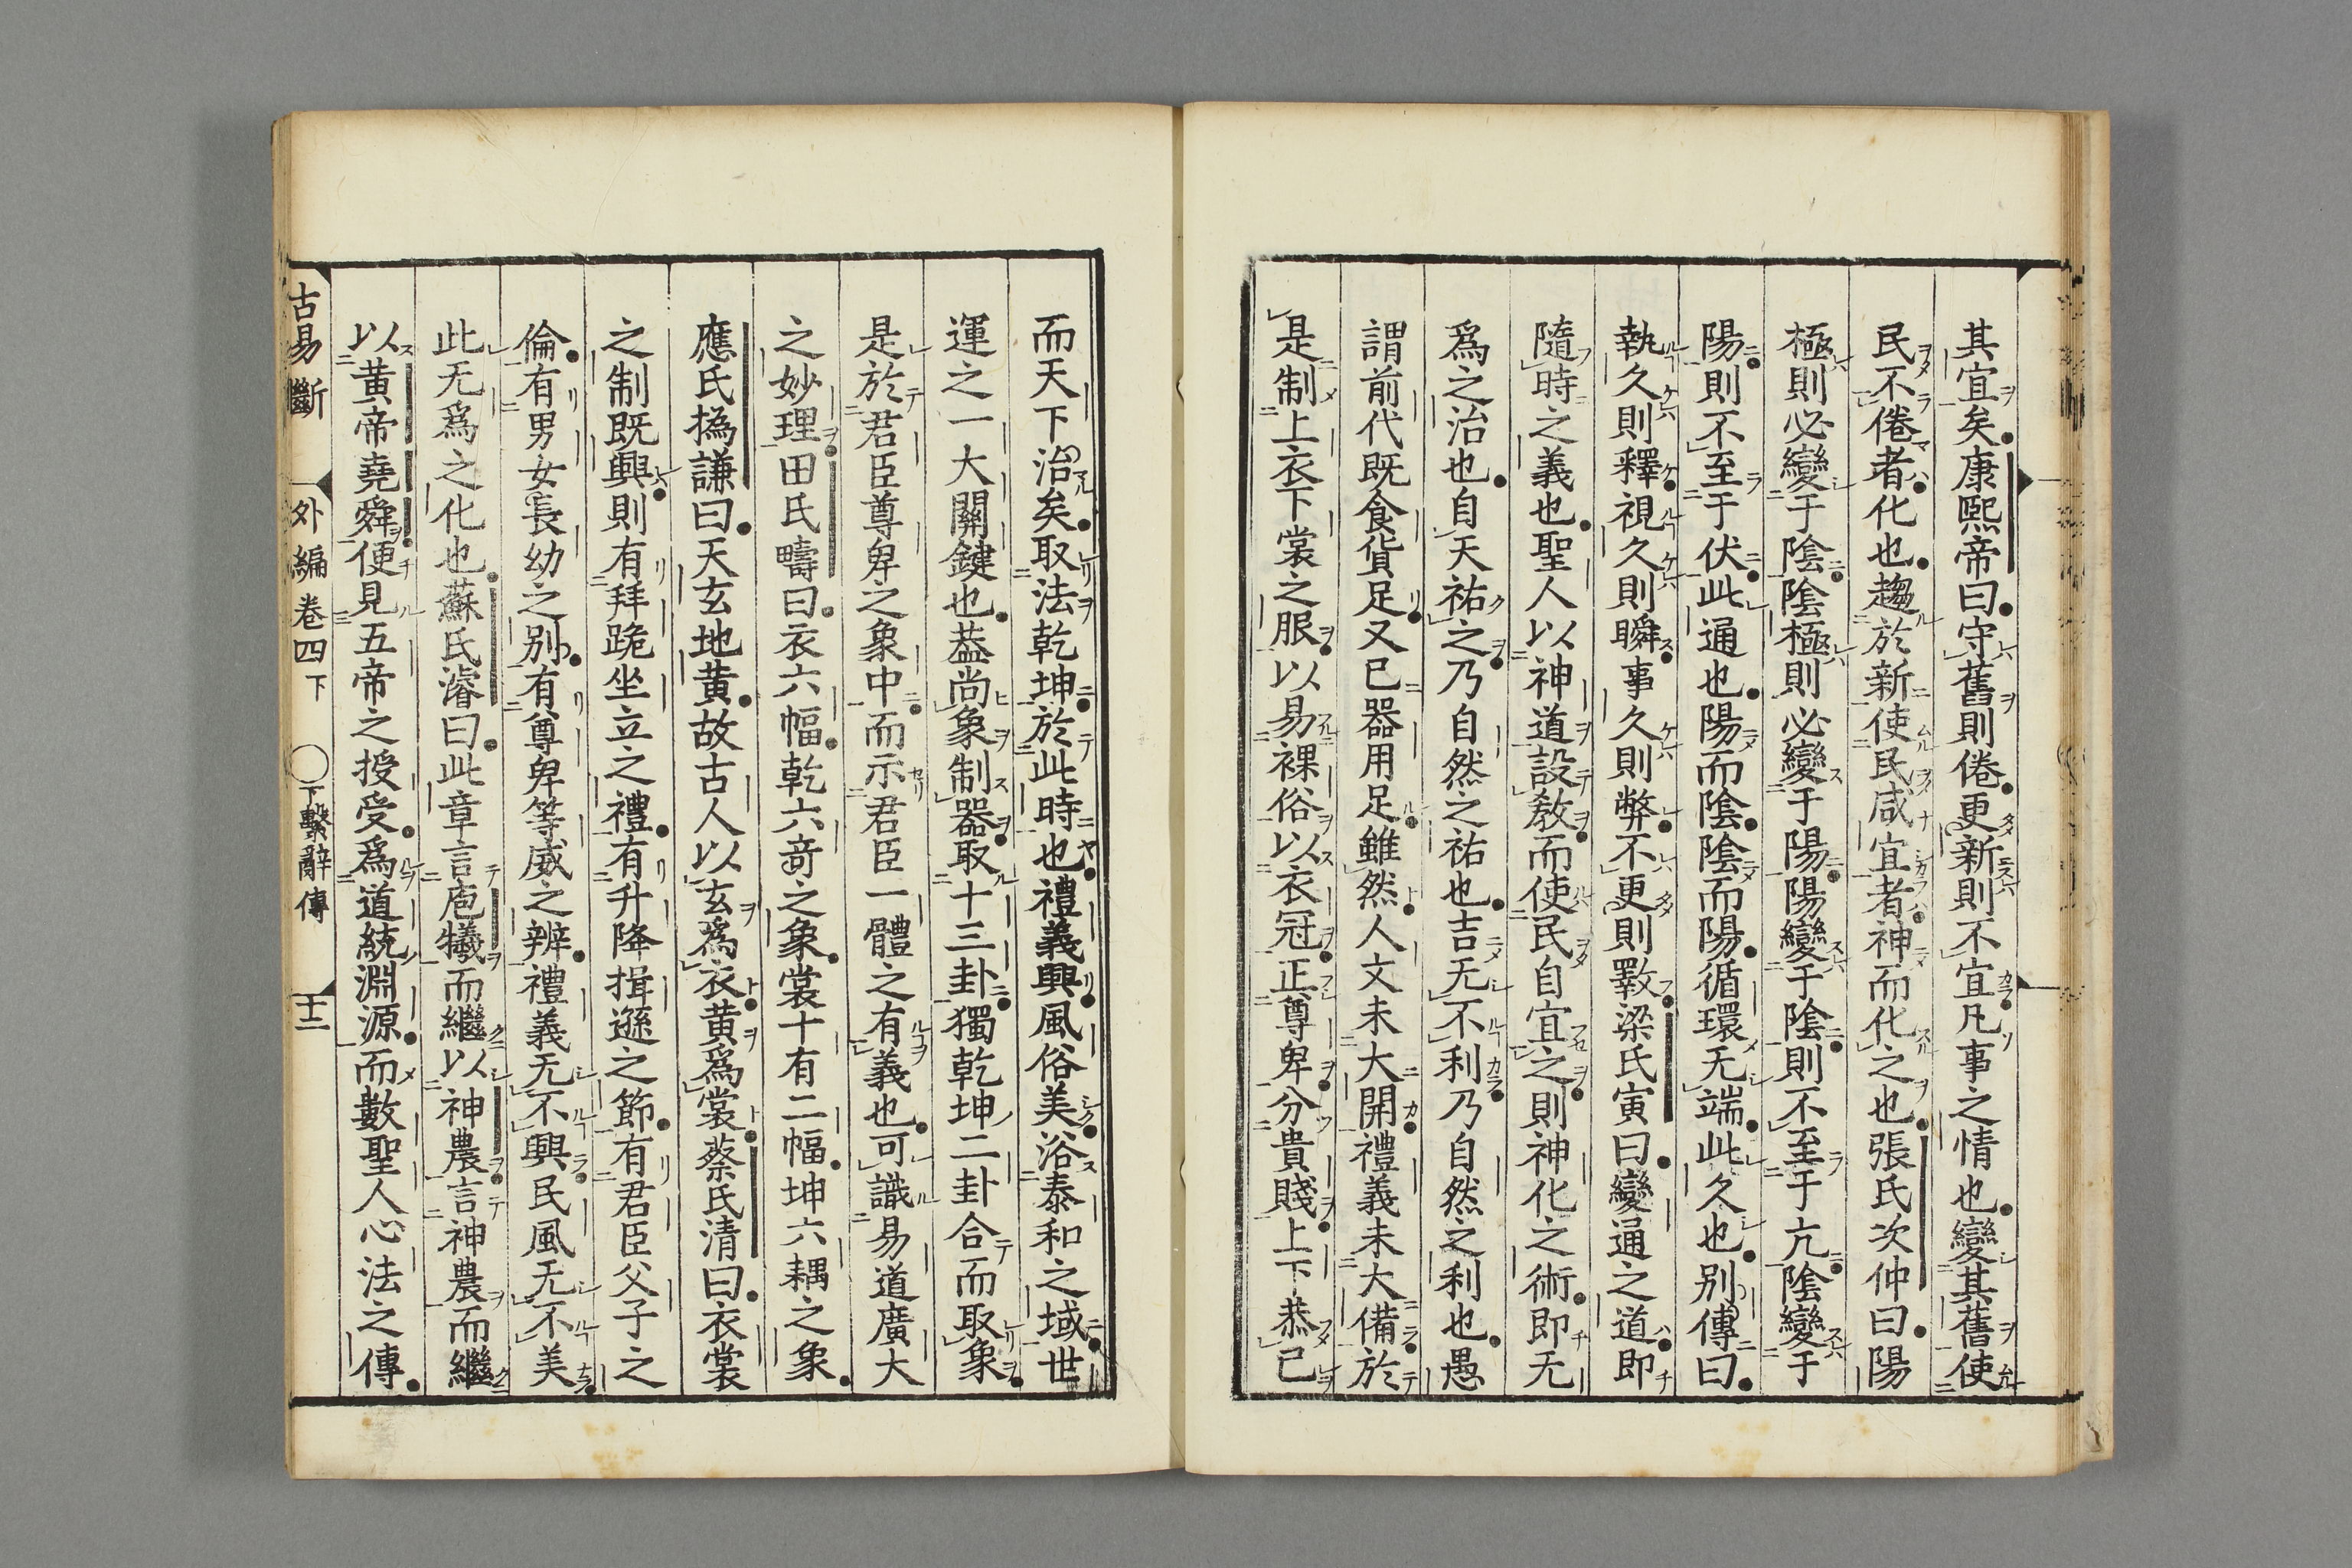 其宜矣康熙帝曰守舊則倦更新則不宜凡事之情也變其舊使
民不倦者化也趨於新使民咸宜者神而化之也張氏次仲曰陽
極則必變于陰陰極則必變于陽陽變于陰則不至于亢陰變于
陽則不至于伏此通也陽而陰陰而陽循環无端此久也別傳曰
執久則釋視久則瞬事久則弊不更則斁梁氏寅曰變通之道即
隨時之義也聖人以神道設敎而使民自宜之則神化之術即无
爲之治也自天祐之乃自然之祐也吉无不利乃自然之利也愚
謂前代既食貨足又已器用足雖然人文未大開禮義未大備於
是制上衣下裳之服以易裸俗以衣冠正尊卑分貴賤上下恭己
而天下治矣取法乾坤於此時也禮義興風俗美浴泰和之域世
運之一大關鍵也葢尚象制器取十三卦獨乾坤二卦合而取象
是於君臣尊卑之象中而示君臣一體之有義也可識易道廣大
之妙理田氏疇曰衣六幅乾六竒之象裳十有二幅坤六耦之象
應氏撝謙曰天玄地黃故古人以玄爲衣黃爲裳蔡氏清曰衣裳
之制既興則有拜跪坐立之禮有升降揖遜之節有君臣父子之
倫有男女長幼之別有尊卑等威之辨禮義无不興民風无不美
此无爲之化也蘇氏濬曰此章言庖犧而繼以神農言神農而繼
以黃帝堯舜便見五帝之授受爲道統淵源而數聖人心法之傳
古易斷 外編卷四下 〇下繫辭傳 十二